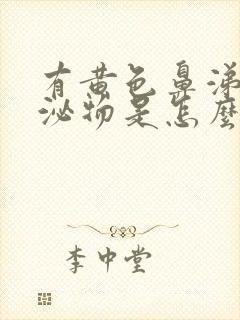 有黄色鼻涕
泌物是怎麼
李中堂